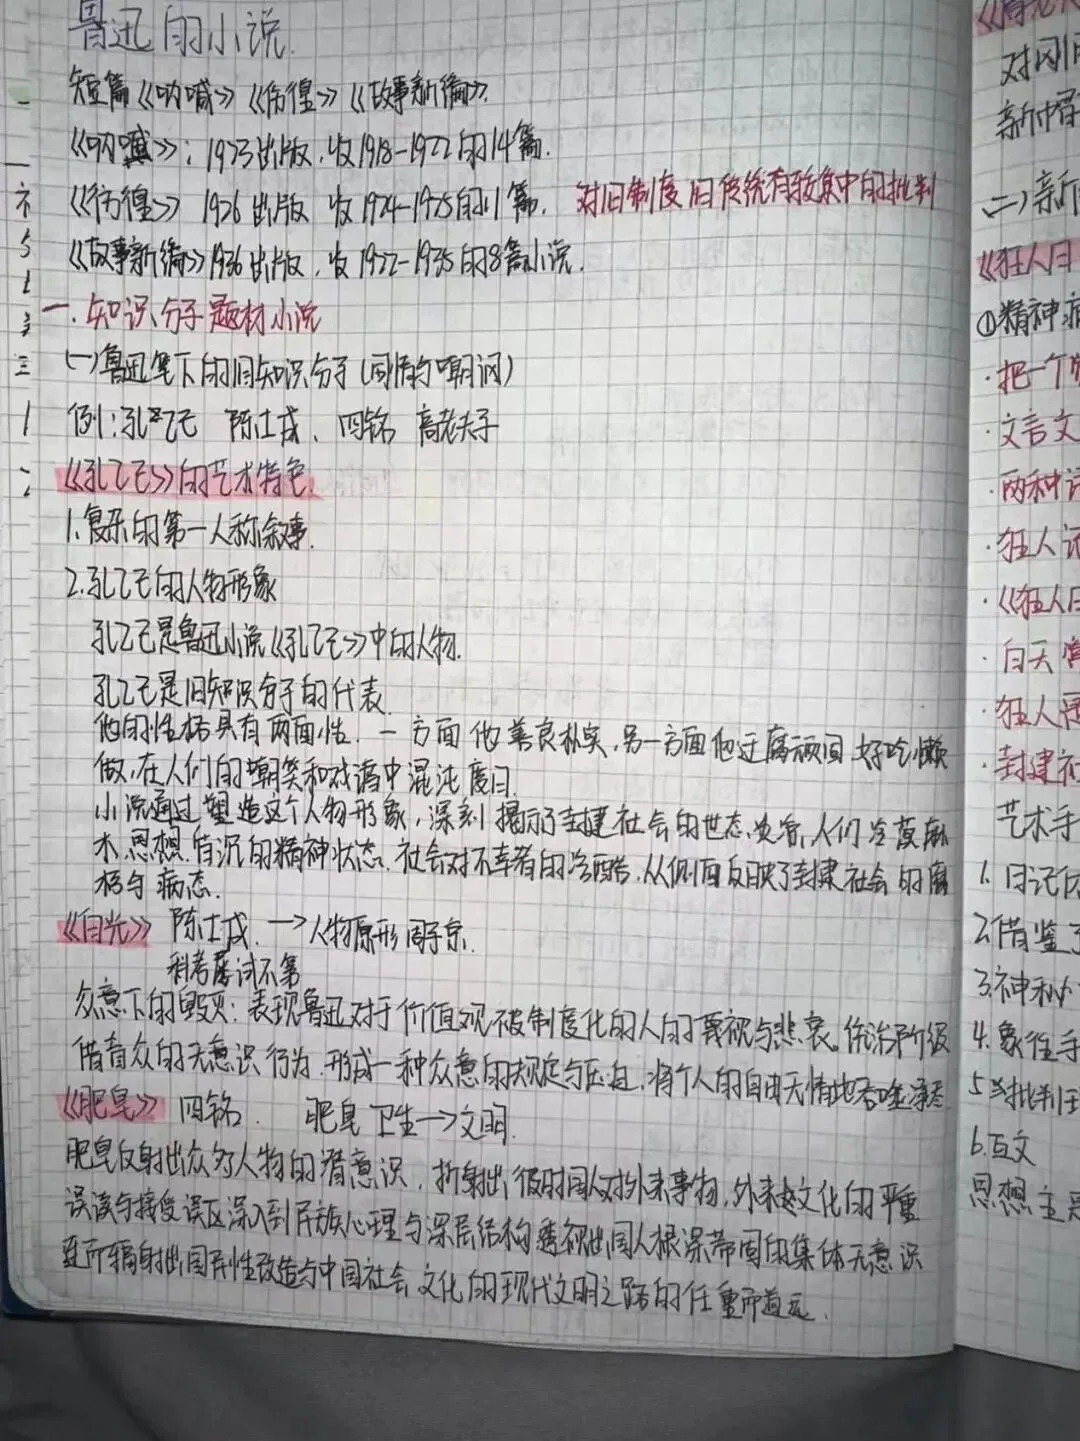 鲁迅的小说.
短篇《呐喊》《彷徨》《故事新编》.
《呐喊》: 1923出版,收1918-1922的14篇.
《彷徨》 1926出版 收1924-1925的11篇. 对旧制度旧传统有较集中的批判
《故事新编》1936出版,收1922-1935的8篇小说.
一.知识分子题材小说
(一)鲁迅笔下的旧知识分子(同情与嘲讽)
例:孔乙己 陈士成、四铭 高老夫子
《孔乙己》的艺术特色.
1.复杂的第一人称叙事.
2.孔乙己的人物形象
孔乙己是鲁迅小说《孔乙己》中的人物.
孔乙己是旧知识分子的代表.
他的性格具有两面性.一方面他善良朴实,另一方面他迂腐顽固 好吃懒
做,在人们的嘲笑和戏谑中混沌度日.
小说通过塑造这个人物形象,深刻揭示了封建社会的世态炎凉,人们冷莫麻
木,思想 的精神状态、社会对不幸者的冷酷,从侧面反映了封建社会的腐
朽与病态.
《白光》 陈士成.→人物原形周子京.
科考屡试不第
众意下的毁灭:表现鲁迅对于价值观被制度化的人的蔑视与悲哀。统治阶级
借着众的无意识行为 形成一种众意的规定与压迫,将个人的自由无情地吞噬净
《肥皂》 四铭. 肥皂 卫生→文明.
肥皂反射出众多人物的潜意识,折射出彼时国人对外来事物,外来文化的严重
误读与接受误区深入到民族心理与深层结构透视出国人根深蒂固的集体无意识
进而辐射出国民性改造与中国社会 文化的现代文明之路的任重而道远.
对
新
(二)新
《狂人日
①精神病
·把一个
·文言文
·两种
·狂人
·《狂人日
·白天
·狂人
·封建社
艺术手
1.日记体
2.借鉴了
3.神秘
4.象征手
5.
6.互文
思想主